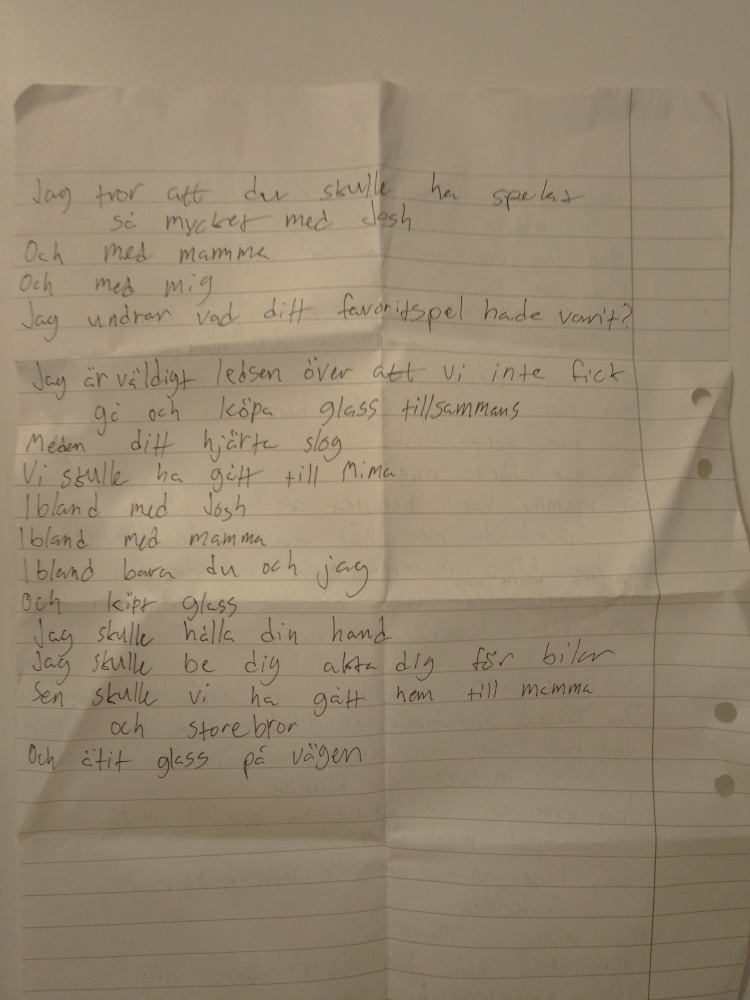 Jag tror att du skulle ha spelat
så mycket med Josh
Och med mamma
Och med mig
Jag undrar vad ditt favoritspel hade varit?
Jag är väldigt ledsen över att vi inte fick
gå och köpa glass tillsammans
Meden ditt hjärte slog
Vi skulle ha gått till Mima
Ibland med Josh
Ibland med mamma
Ibland bara du och jag
Och köpt glass
Jag skulle hålla din hand
Jag skulle be dig akta dig för bilar
Sen skulle vi ha gått hem till mamma
och storebror
Och ätit glass på vägen